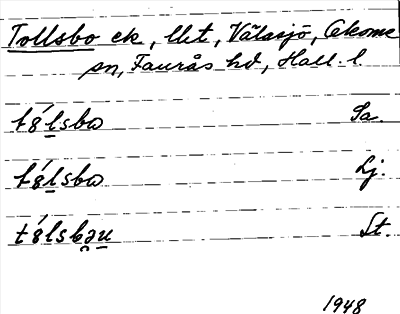 Tollsbo ek, lht, Västsjö, Okome
sn, Faurås hd, Hall. l.
tólsbω Sa.
tólsbω Lj.
tólsbəu St.
1948